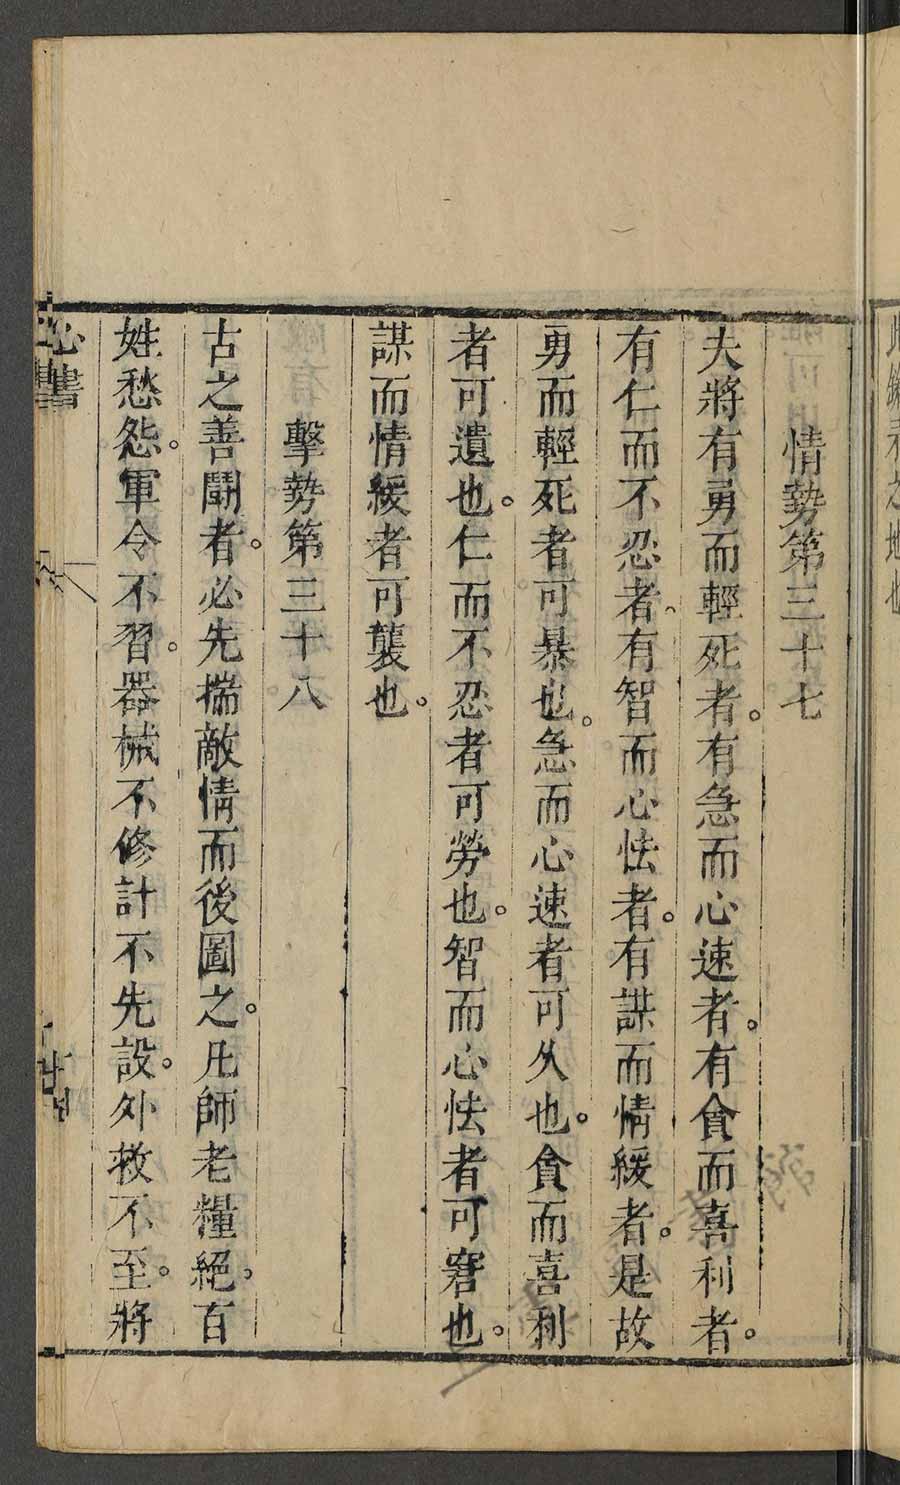 情勢第三十七
夫將有勇而輕死者。有急而心速者。有貪而喜利者。
有仁而不忍者。有智而心怯者。有謀而情緩者。是故
勇而輕死者可暴也。急而心速者可久也。貪而喜利
者可遺也。仁而不忍者可勞也。智而心怯者可窘也。
謀而情緩者可襲也。
擊勢第三十八
古之善鬪者。必先揣敵情而後圖之。凡師老糧絕。百
姓愁怨。軍令不習。器械不修計不先設。外救不至。將
心書